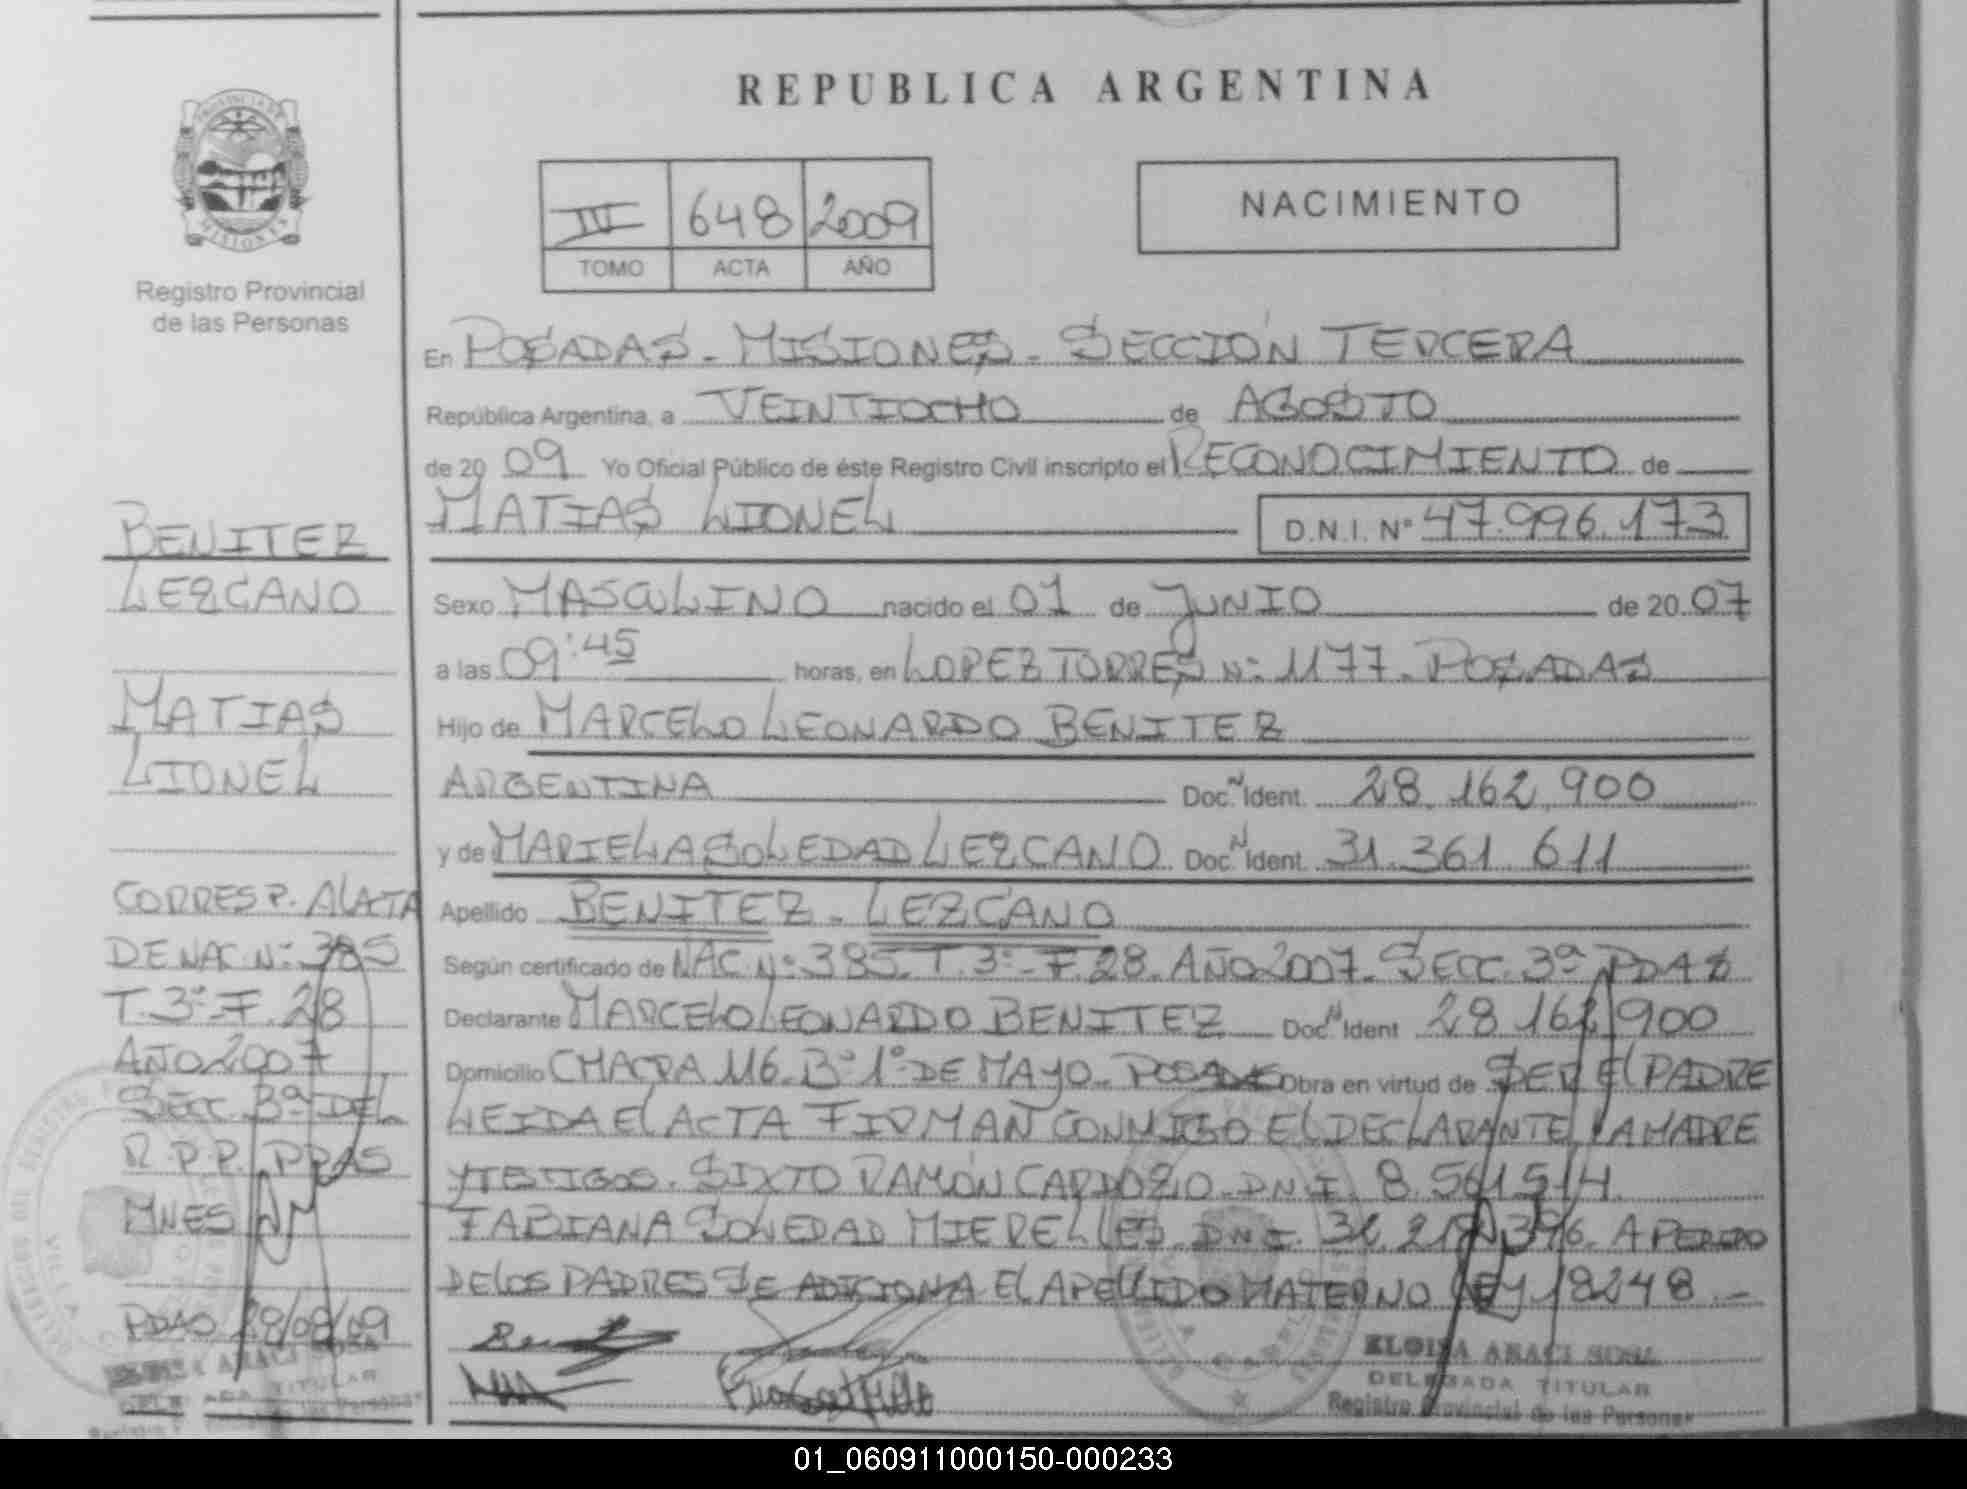 REPUBLICA ARGENTINA
PROVINCIA DE
MISIONES
Registro Provincial
de las Personas
III 648 2009
TOMO ACTA AÑO
NACIMIENTO
En POSADAS - MISIONES - SECCIÓN TERCERA
República Argentina, a VEINTIOCHO de AGOSTO
de 20 09 Yo Oficial Público de éste Registro Civil inscripto el RECONOCIMIENTO de
MATIAS LIONEL D.N.I. Nº 47.996.173
Sexo MASCULINO nacido el 01 de JUNIO de 20 07
a las 09:45 horas, en LOPEZ TORRES Nº 1177 - POSADAS
Hijo de MARCELO LEONARDO BENITEZ
ARGENTINA Doc. N Ident. 28.162.900
y de MARIELA SOLEDAD LEZCANO Doc. N Ident. 31.361.611
Apellido BENITEZ - LEZCANO
Según certificado de NAC. Nº 385. T. 3º - F. 28. AÑO 2007. SECC. 3ª PDAS
Declarante MARCELO LEONARDO BENITEZ Doc. N Ident 28.162.900
Domicilio CHACRA 116. Bº 1º DE MAYO - POSADAS Obra en virtud de SER EL PADRE
LEIDA EL ACTA FIRMAN CONMIGO EL DECLARANTE LA MADRE
Y TESTIGOS. SIXTO RAMÓN CARDOZO. DNI. 8.561514.
FABIANA SOLEDAD MIERELLES DNI. A PEDIDO
DE LOS PADRES SE ADICIONA EL APELLIDO MATERNO LEY 18248.-
ELOISA ARACI SOSA
DELEGADA TITULAR
Registro Provincial de las Personas
BENITEZ
LEZCANO
MATIAS
LIONEL
CORRESP. AL ACTA
DE NAC. Nº 385
T. 3º F. 28
AÑO 2007
SECC. 3ª DEL
R.P.P. PDAS
MNES
PDAS 28/08/09
ARACI SOSA
TITULAR
01_060911000150-000233